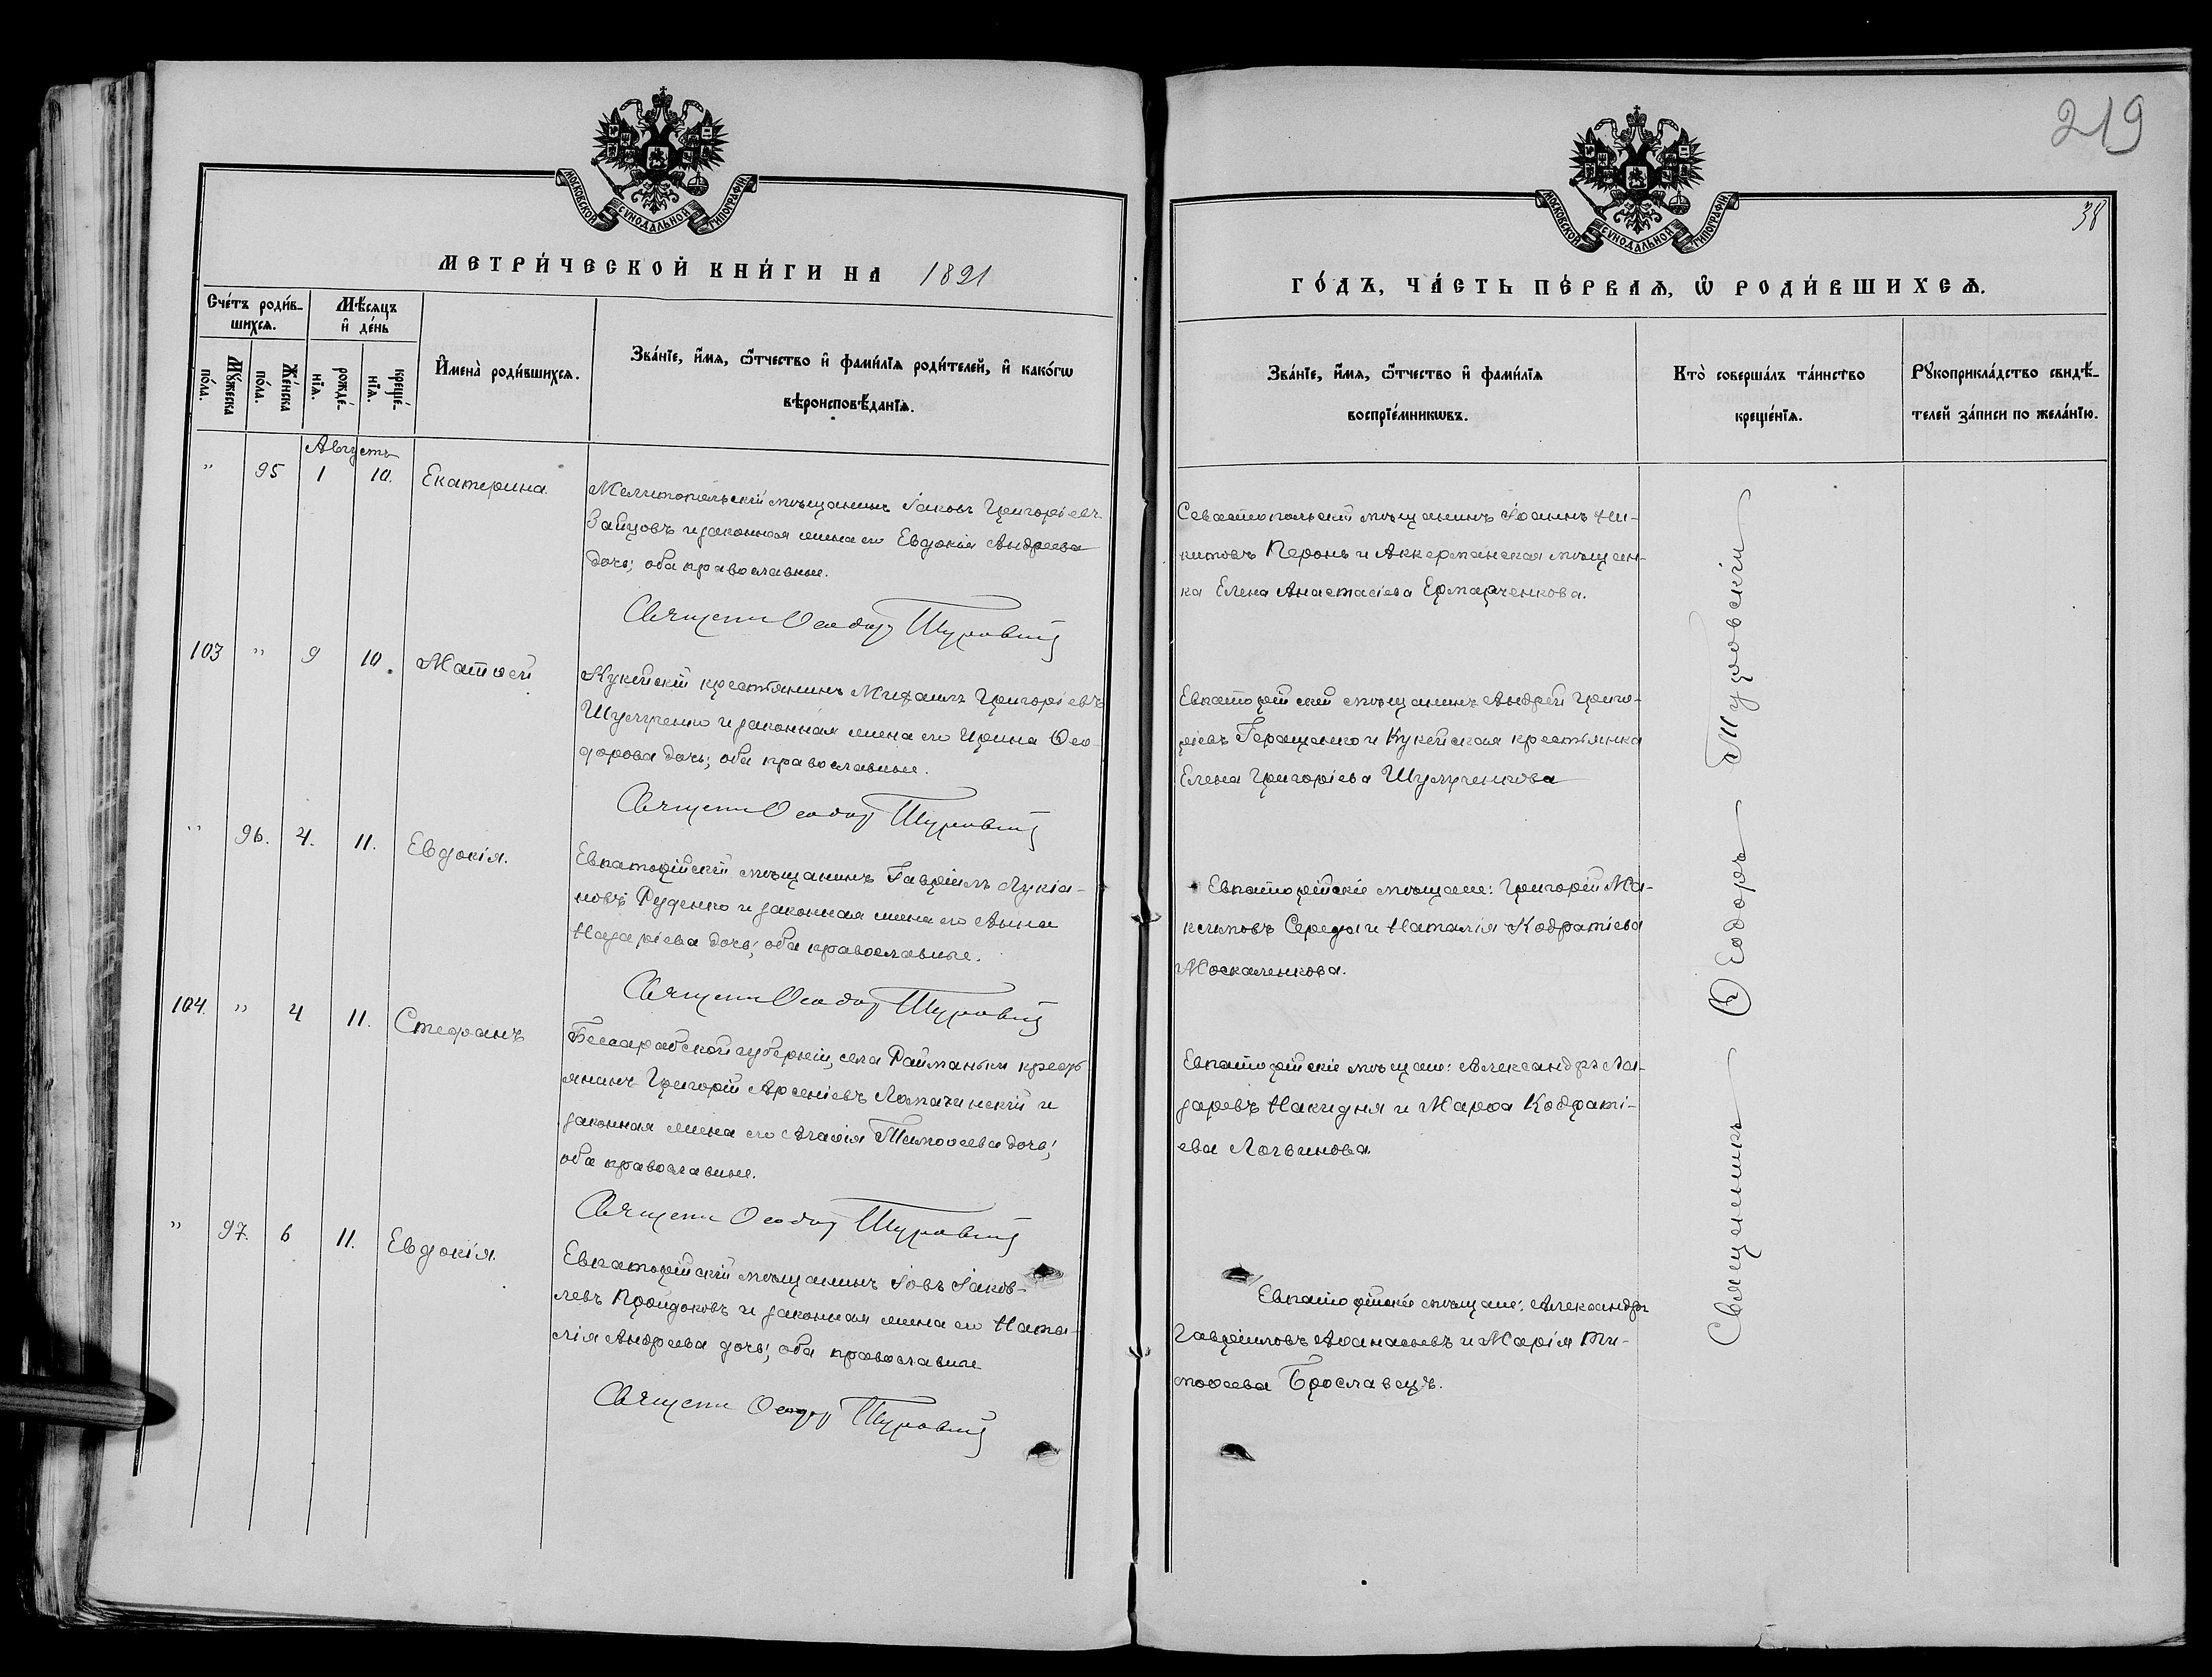 219
38
МОСКОВСКОЙ СѴНОДАЛЬНОЙ ТИПОГРАФІИ
МЕТРИ́ЧЕСКОЙ КНИ́ГИ НА 1891
Сче́тъ роди́в-
шихсѧ.
Мѣ́сѧцъ
и҆ де́нь
Мꙋ́жеска
по́ла.
Же́нска
по́ла.
рожде́-
нїѧ.
креще́-
нїѧ.
И҆мена̀ роди́вшихсѧ.
Зва́нїе, и҆́мѧ, ѻ҆́тчество и҆ фами́лїѧ роди́телей, и҆ како́гѡ
вѣроисповѣ́данїѧ.
Августъ
" 95 1 10. Екатерина.
Мелитопольскій мѣщанинъ Іаковъ Григоріевъ
Зайцовъ и законная жена его Евдокія Андреева
дочь; оба православные.
Священ Ѳеодор Туровскій
103 " 9 10. Матѳей
Кукейскій крестьянинъ Михаилъ Григоріевъ
Шулученко и законная жена его Ирина Ѳео-
дорова дочь; оба православные.
Священ Ѳеодор Туровскій
" 96. 4. 11. Евдокія.
Евпаторійскій мѣщанинъ Гавріилъ Лукіа-
новъ Руденко и законная жена его Анна
Назаріева дочь; оба православные.
Священ Ѳеодор Туровскій
104. " 4 11. Стефанъ
Бессарабской губерніи, села Райманьки кресть
янинъ Григорій Арсеніевъ Ломачинскій и
законная жена его Агаѳія Тимоѳеева дочь;
оба православные.
Священ Ѳеодор Туровскій
" 97. 6 11. Евдокія.
Евпаторійскій мѣщанинъ Іовъ Іаков-
левъ Пройдоковъ и законная жена его Ната-
лія Андреева дочь; оба православные
Священ Ѳеодор Туровскій
МОСКОВСКОЙ СѴНОДАЛЬНОЙ ТИПОГРАФІИ
ГО́ДЪ, ЧА́СТЬ ПЕ́РВАѦ, Ѡ҆ РОДИ́ВШИХСѦ.
Зва́нїе, и҆́мѧ, ѻ҆́тчество и҆ фами́лїѧ
воспрїе́мникѡвъ.
Кто̀ соверша́лъ та́инство
креще́нїѧ.
Рꙋкоприкла́дство свидѣ́-
телей за́писи по жела́нїю.
Севастопольскій мѣщанинъ Іоаннъ Ни-
китовъ Перонь и Аккерманская мѣщан-
ка Елена Анастасіева Ермарченкова.
Евпаторійскій мѣщанинъ Андрей Григо-
ріевъ Геращенко и Кукейская крестьянка
Елена Григоріева Шулученкова
Евпаторійскіе мѣщане: Григорій Ма-
ксимовъ Середа и Наталія Кодратіева
Москаленкова.
Евпаторійскіе мѣщане: Александръ Ла-
заревъ Накидня и Марѳа Кодрати-
ева Логвинова.
Евпаторійскіе мѣщане: Александръ
Гавріиловъ Аѳанасьевъ и Марія Ти-
моѳеева Брославецъ.
Священникъ Ѳеодоръ Туровскій